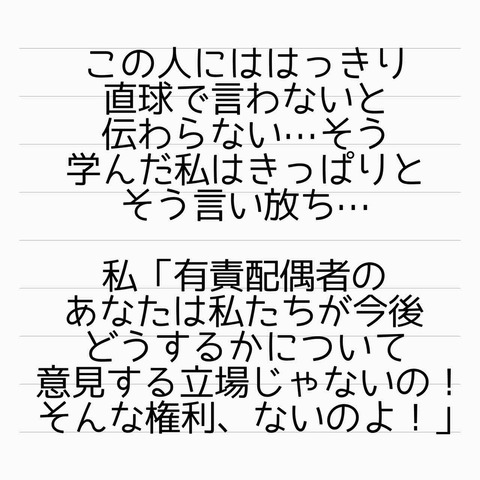 この人にははっきり
直球で言わないと
伝わらない…そう
学んだ私はきっぱりと
そう言い放ち…
私「有責配偶者の
あなたは私たちが今後
どうするかについて
意見する立場じゃないの！
そんな権利、ないのよ！」